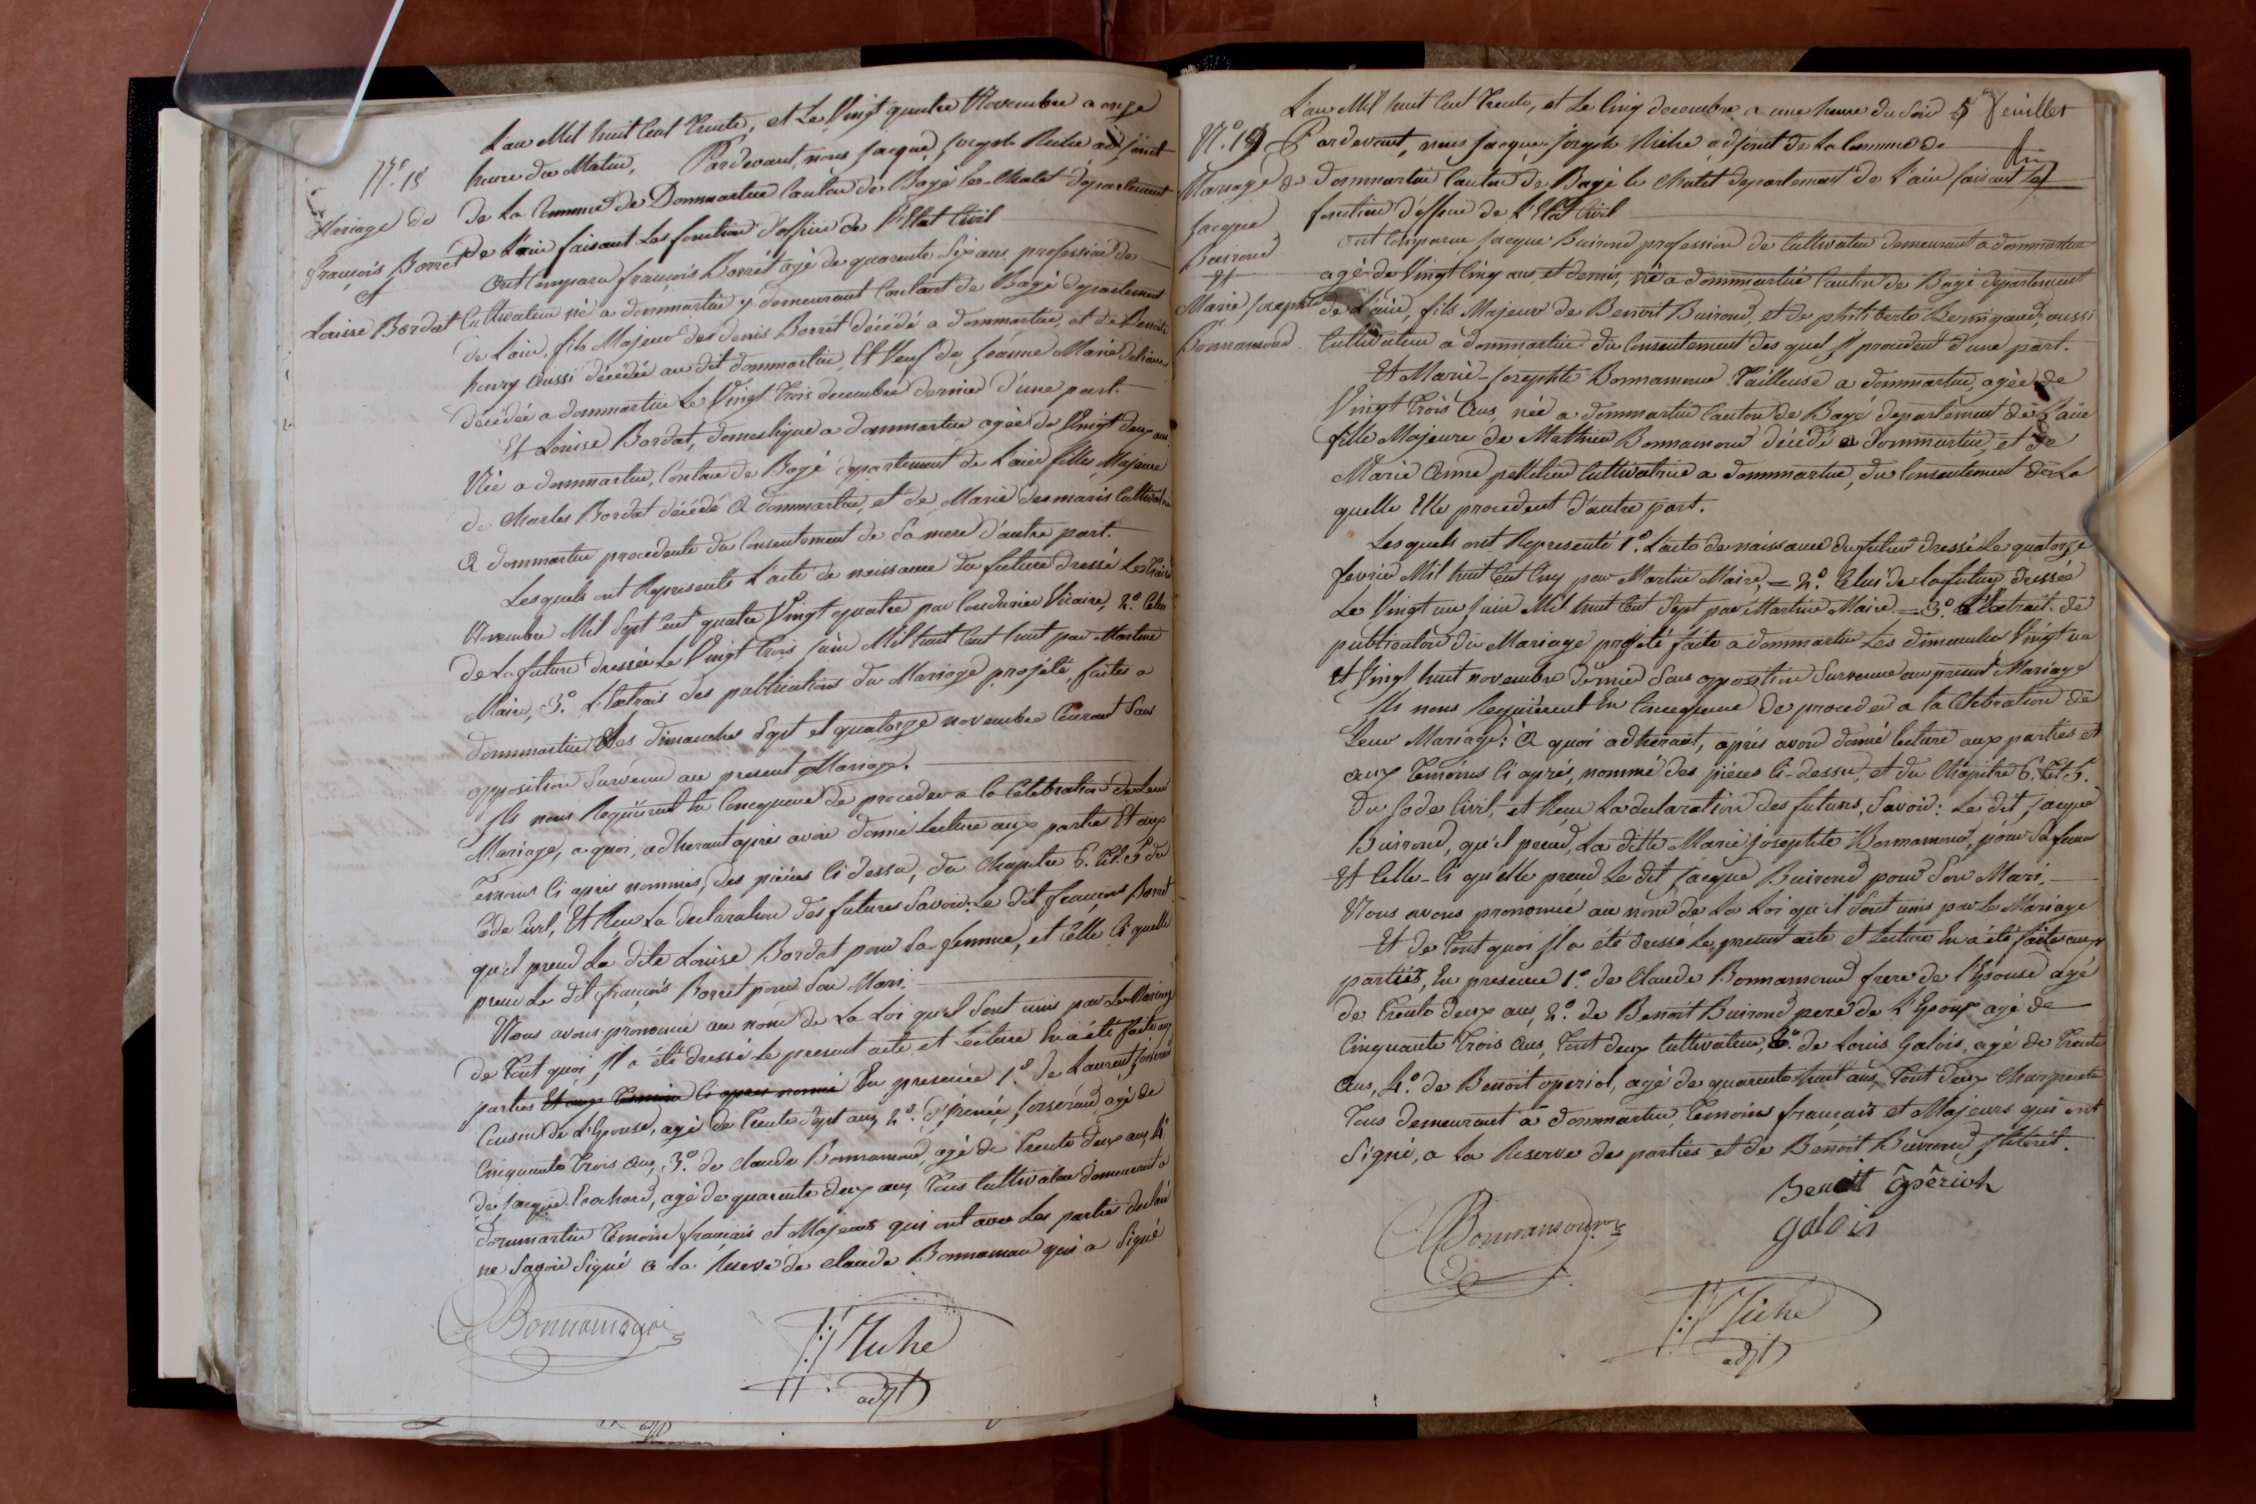 L'an Mil huit Cent Trente, et Le Vingt quatre Novembre a onze
N.º 18
heure du Matin, Pardevant nous Jacque Joseph Riche adjoint
Mariage de
de La Commune de Dommartin Canton de Bagé le Chatet département
François Borret
de L'ain faisant Les fonction d'officier de L'Etat Civil
et
Ont Comparu françois Borrét agé de quarente Six ans profession de
Louise Bordat
Cultivateur né a dommartin y demeurant Contant de Bagé département
de L'ain, fils Majeur des denis Borrét décédé a dommartin, et de Benoite
henry aussi décédée au dit dommartin, Et Veuf de Jeanne Marie
décédée a dommartin Le Vingt Trois decembre dernier d'une part.
Et Louise Bordat, domestique a dommartin agée de Vingt deux ans
Née a dommartin, Contant de Bagé département de L'ain filles Majeure
de Charles Bordat décédé a dommartin, et de Marie desmaris Cultivatrice
a dommartin procedente du Consentement de Sa mere d'autre part.
Lesquels ont Représente L'acte de naissance du future dressé Le Troix
Novembre Mil Sept Cent quatre Vingt quatre par Vicaire, 2.º Celui
de La future dressée Le Vingt Trois juin Mil huit Cent huit par Martine
Maire, 3.º L'Extrais des publications du Mariage projété, faites a
dommartin Les dimanches Sept et quatorze novembre Courant Sans
opposition Survenue au present Mariage.
Ils nous Requierent En Concequence de proceder a la Célébration de Leur
Mariage, a quoi, adherant apres avoir donné Lecture aux partie Et aux
Temoins Ci apres nommés, des piéces Ci dessu, du Chapitre 6. tit. 5 du
Code Civil, Et Reçu La declaration des futures Savoir: Le dit françois Borret
qu'il prend La dite Louise Bordat pour Sa femme, et Celle Ci quelle
prend Le dit françois Borret pour Son Mari.
Nous avons prononcé au nom de La Loi qu'il Sont unis par Le Mariage
de Tout quoi, Il a été dressé Le present acte et Lecture En a été faite aux
parties Et aux Temoins Ci apres nommé En presence 1.º de Laurent
Cousin de L'Epouse, agé de Trente Sept ans, 2.º d' agé de
Cinquante Trois ans, 3.º de Claude Bonnamour, agé de Trente deux ans, 4º
de Jacque Rochard, agé de quarente deux ans Tous Cultivateur demeurant a
dommartin Temoins français et Majeurs qui ont avec Les parties declaré
ne Savoir Signé a La Reserve de Claude Bonnamour qui a Signé
Bonnamour
J.J. Riche
adjt
L'an Mil huit Cent Trente, et Le Cinq decembre a une heure du Soir 5 feuillet
N.º 19
Pardevant, nous Jacque Joseph Riche adjoint de La Commune de
Mariage de
dommartin Canton de Bagé le Chatet departement de L'ain faisant Les
Jacque
fonction d'officier de L'Etat Civil
Buiroud
Ont Comparue Jacque Buiroud profession de Cultivateur demeurant a dommartin
Et
agé de Vingt Cinq ans et demis, né a dommartin Canton de Bagé departement
Marie Josephte
de L'ain, fils Majeur de Benoit Buiroud, et de philiberte Bernigaud, aussi
Bonnamour
Cultivateur à dommartin du Consentement des quel Il procedent d'une part.
Et Marie-Josephte Bonnamour Tailleuse a dommartin, agée de
Vingt Trois Ans, née a dommartin Canton de Bagé departement de L'ain
fille Majeure de Mathieu Bonnamour décédé a dommartin, et de
Marie Anne pelletier Cultivatrice a dommartin, du Consentement de La
quelle Elle procedent d'autre part.
Les quels ont Representé 1.º L'acte de naissance du futur dressé Le quatorze
fevrier Mil huit Cent Cinq par Martin Maire, = 2.º Celui de La future, dressée
Le Vingt un juin Mil huit Cent Sept par Martine Maire = 3.º L'Extrait de
publication du Mariage projeté faite a dommartin Les dimanches Vingt un
Et Vingt huit novembre dernier Sans opposition Survenue au present Mariage
Ils nous Requierent En Concequence de proceder a la Célébration de
Leur Mariage; a quoi adherant, aprés avoir donné Lecture aux parties et
aux Temoins Ci aprés, nommé des piéces Ci-dessu, et du Chapitre 6. tit. 5.
Du Code Civil, et Reçu La declaration des futures, Savoir: Le dit, Jacque
Buiroud, qu'il prend, La ditte Marie Josephte Bonnamour, pour Sa femme
Et Celle-Ci qu'elle prend Le dit Jacque Buiroud pour Son Mari.
Nous avons prononcé au nom de La Loi qu'il Sont unis par Le Mariage
Et de Tout quoi Il a été dressé Le present acte et Lecture En a été faite aux
parties, En presence 1.º de Claude Bonnamour frere de L'Epouse agé
de Trente deux ans, 2.º de Benoit Buiroud pere de L'Epoux agé de
Cinquante Trois Ans, Tout deux Cultivateur, 3.º de Louis Galois, agé de Trente
Ans, 4.º de Benoit operiol, agé de quarente huit ans, Tout deux Charpentier
Tous demeurant à dommartin, Temoins français et Majeurs qui ont
Signé, a La Reserve des parties et de Benoit Buiroud Illitéré.
Benoit Ôpêrioh
Bonnamour
galois
J.J. Riche
adjt